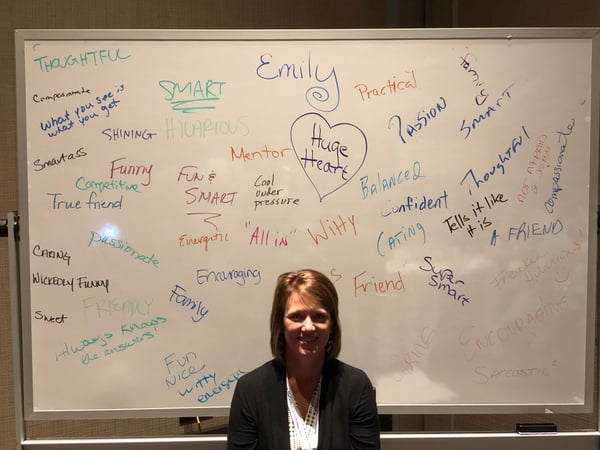 THOUGHTFUL
Compassionate
What you see is
what you get
SMART
SHINING
HILARIOUS
Emily
Practical
Family
PASSION
SMART
Huge
Heart
Smartass
Funny
Competitive
True friend
FUN &
SMART
Mentor
Cool
under
pressure
BALANCED
Confident
Thoughtful
NOT AFRAID
Compassionate
Tells it like
it is
A FRIEND
passionate
Energetic
"All in"
Witty
CARING
CARING
WICKEDLY FUNNY
Sweet
FRIENDLY
Always knows
the answers!
Encouraging
Family
Friend
Super
Smart
Freakin
hilarious!
FUN
NICE
Witty
energetic
CARING
ENCOURAGING
Sarcastic